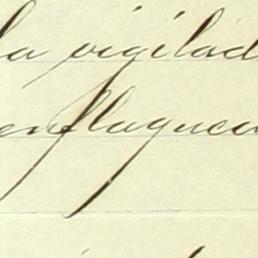 la vigilad
enflaquecer